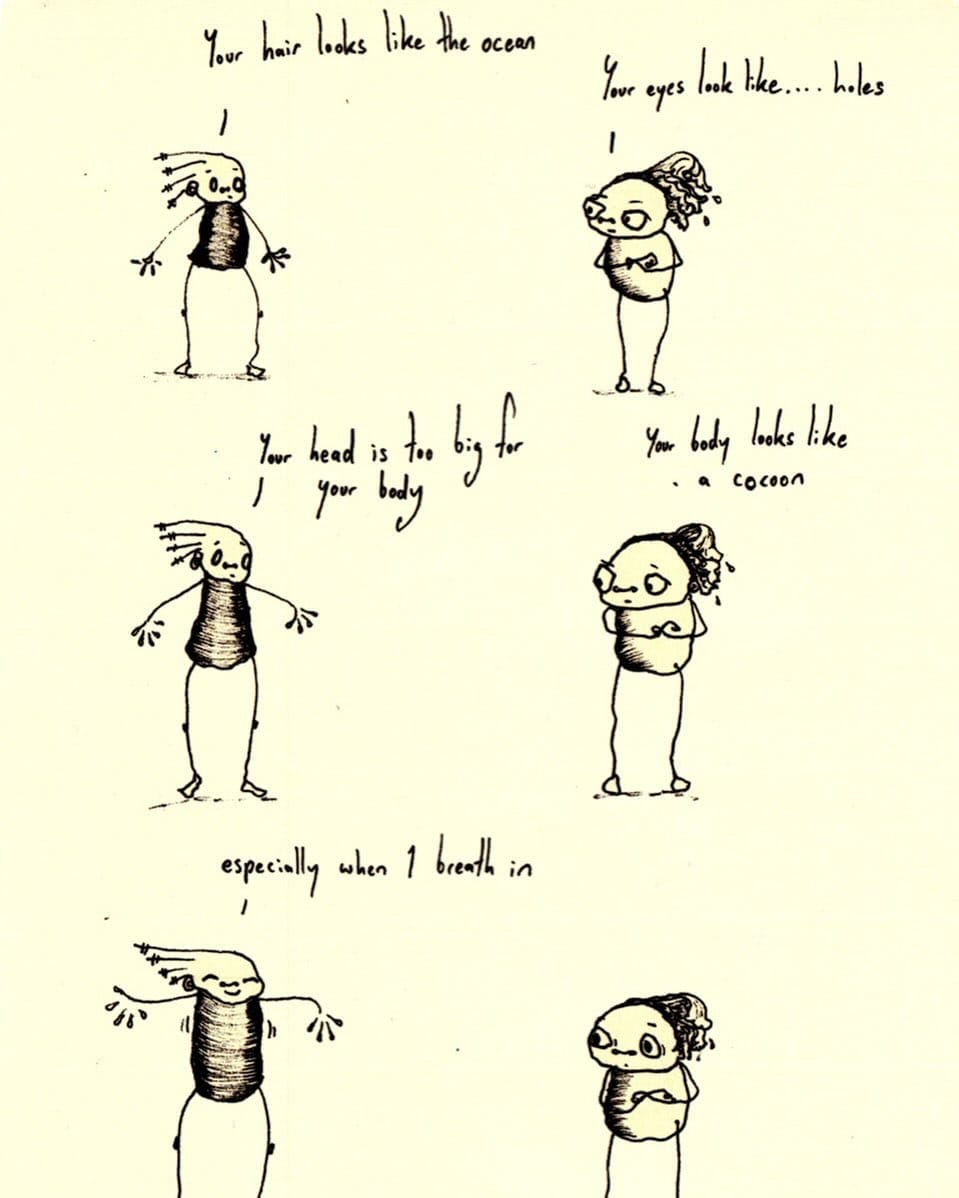 Your hair looks like the ocean
Your eyes look like.... holes
Your head is too big for
your body
Your body looks like
a cocoon
especially when I breath in